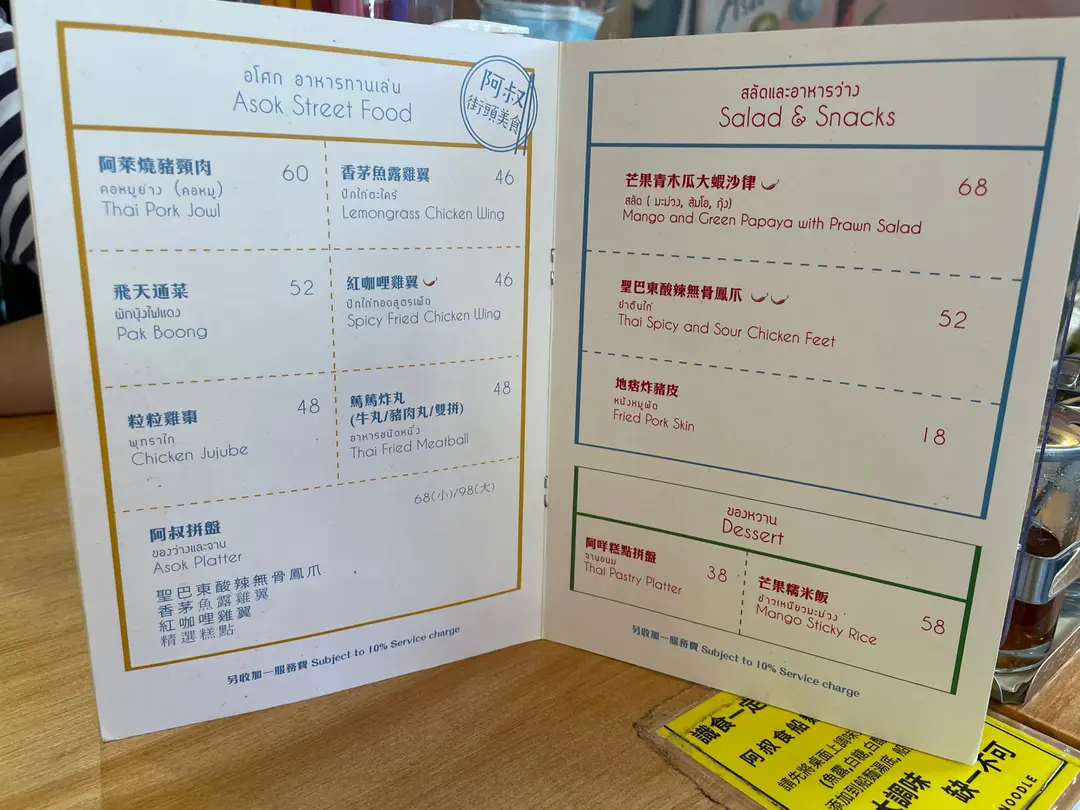 อโศก อาหารทานเล่น
Asok Street Food
阿叔
街頭美食
阿萊燒豬頸肉 60
คอหมูย่าง (คอหมู)
Thai Pork Jowl
香茅魚露雞翼 46
ปีกไก่ตะไคร้
Lemongrass Chicken Wing
飛天通菜 52
ผักบุ้งไฟแดง
Pak Boong
紅咖哩雞翼 46
ปีกไก่ทอดสูตรเผ็ด
Spicy Fried Chicken Wing
粒粒雞棗 48
พุทราไก่
Chicken Jujube
篤篤炸丸 48
(牛丸/豬肉丸/雙拼)
อาหารชนิดหนึ่ง
Thai Fried Meatball
68(小)/98(大)
阿叔拼盤
ของว่างและจาน
Asok Platter
聖巴東酸辣無骨鳳爪
香茅魚露雞翼
紅咖哩雞翼
精選糕點
另收加一服務費 Subject to 10% Service charge
สลัดและอาหารว่าง
Salad & Snacks
芒果青木瓜大蝦沙律 68
สลัด ( มะม่วง, ส้มโอ, กุ้ง)
Mango and Green Papaya with Prawn Salad
聖巴東酸辣無骨鳳爪 52
ยำตีนไก่
Thai Spicy and Sour Chicken Feet
地痞炸豬皮 18
หนังหมูผัด
Fried Pork Skin
ของหวาน
Dessert
阿咩糕點拼盤 38
จานขนม
Thai Pastry Platter
芒果糯米飯 58
ข้าวเหนียวมะม่วง
Mango Sticky Rice
另收加一服務費 Subject to 10% Service charge
識食一定
阿叔食船
請先將桌面上調味
(魚露,白糖,白醋
添加到船麵湯底,
調味
缺一不可
NOODLE